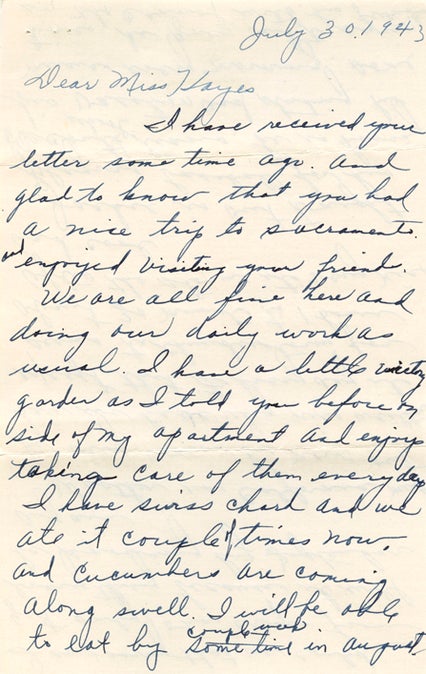 July 30. 1943
Dear Miss Hayes
I have received your
letter some time ago. And
glad to know that you had
a nice trip to sacramento.
and enjoyed visiting your friend.
We are all fine here and
doing our daily work as
usual. I have a little victory
garden as I told you before on
side of my apartment and enjoys
taking care of them everyday
I have swiss chard and we
ate it couple of times now.
and cucumbers are coming
along swell. I will be able
to eat by some time in august.